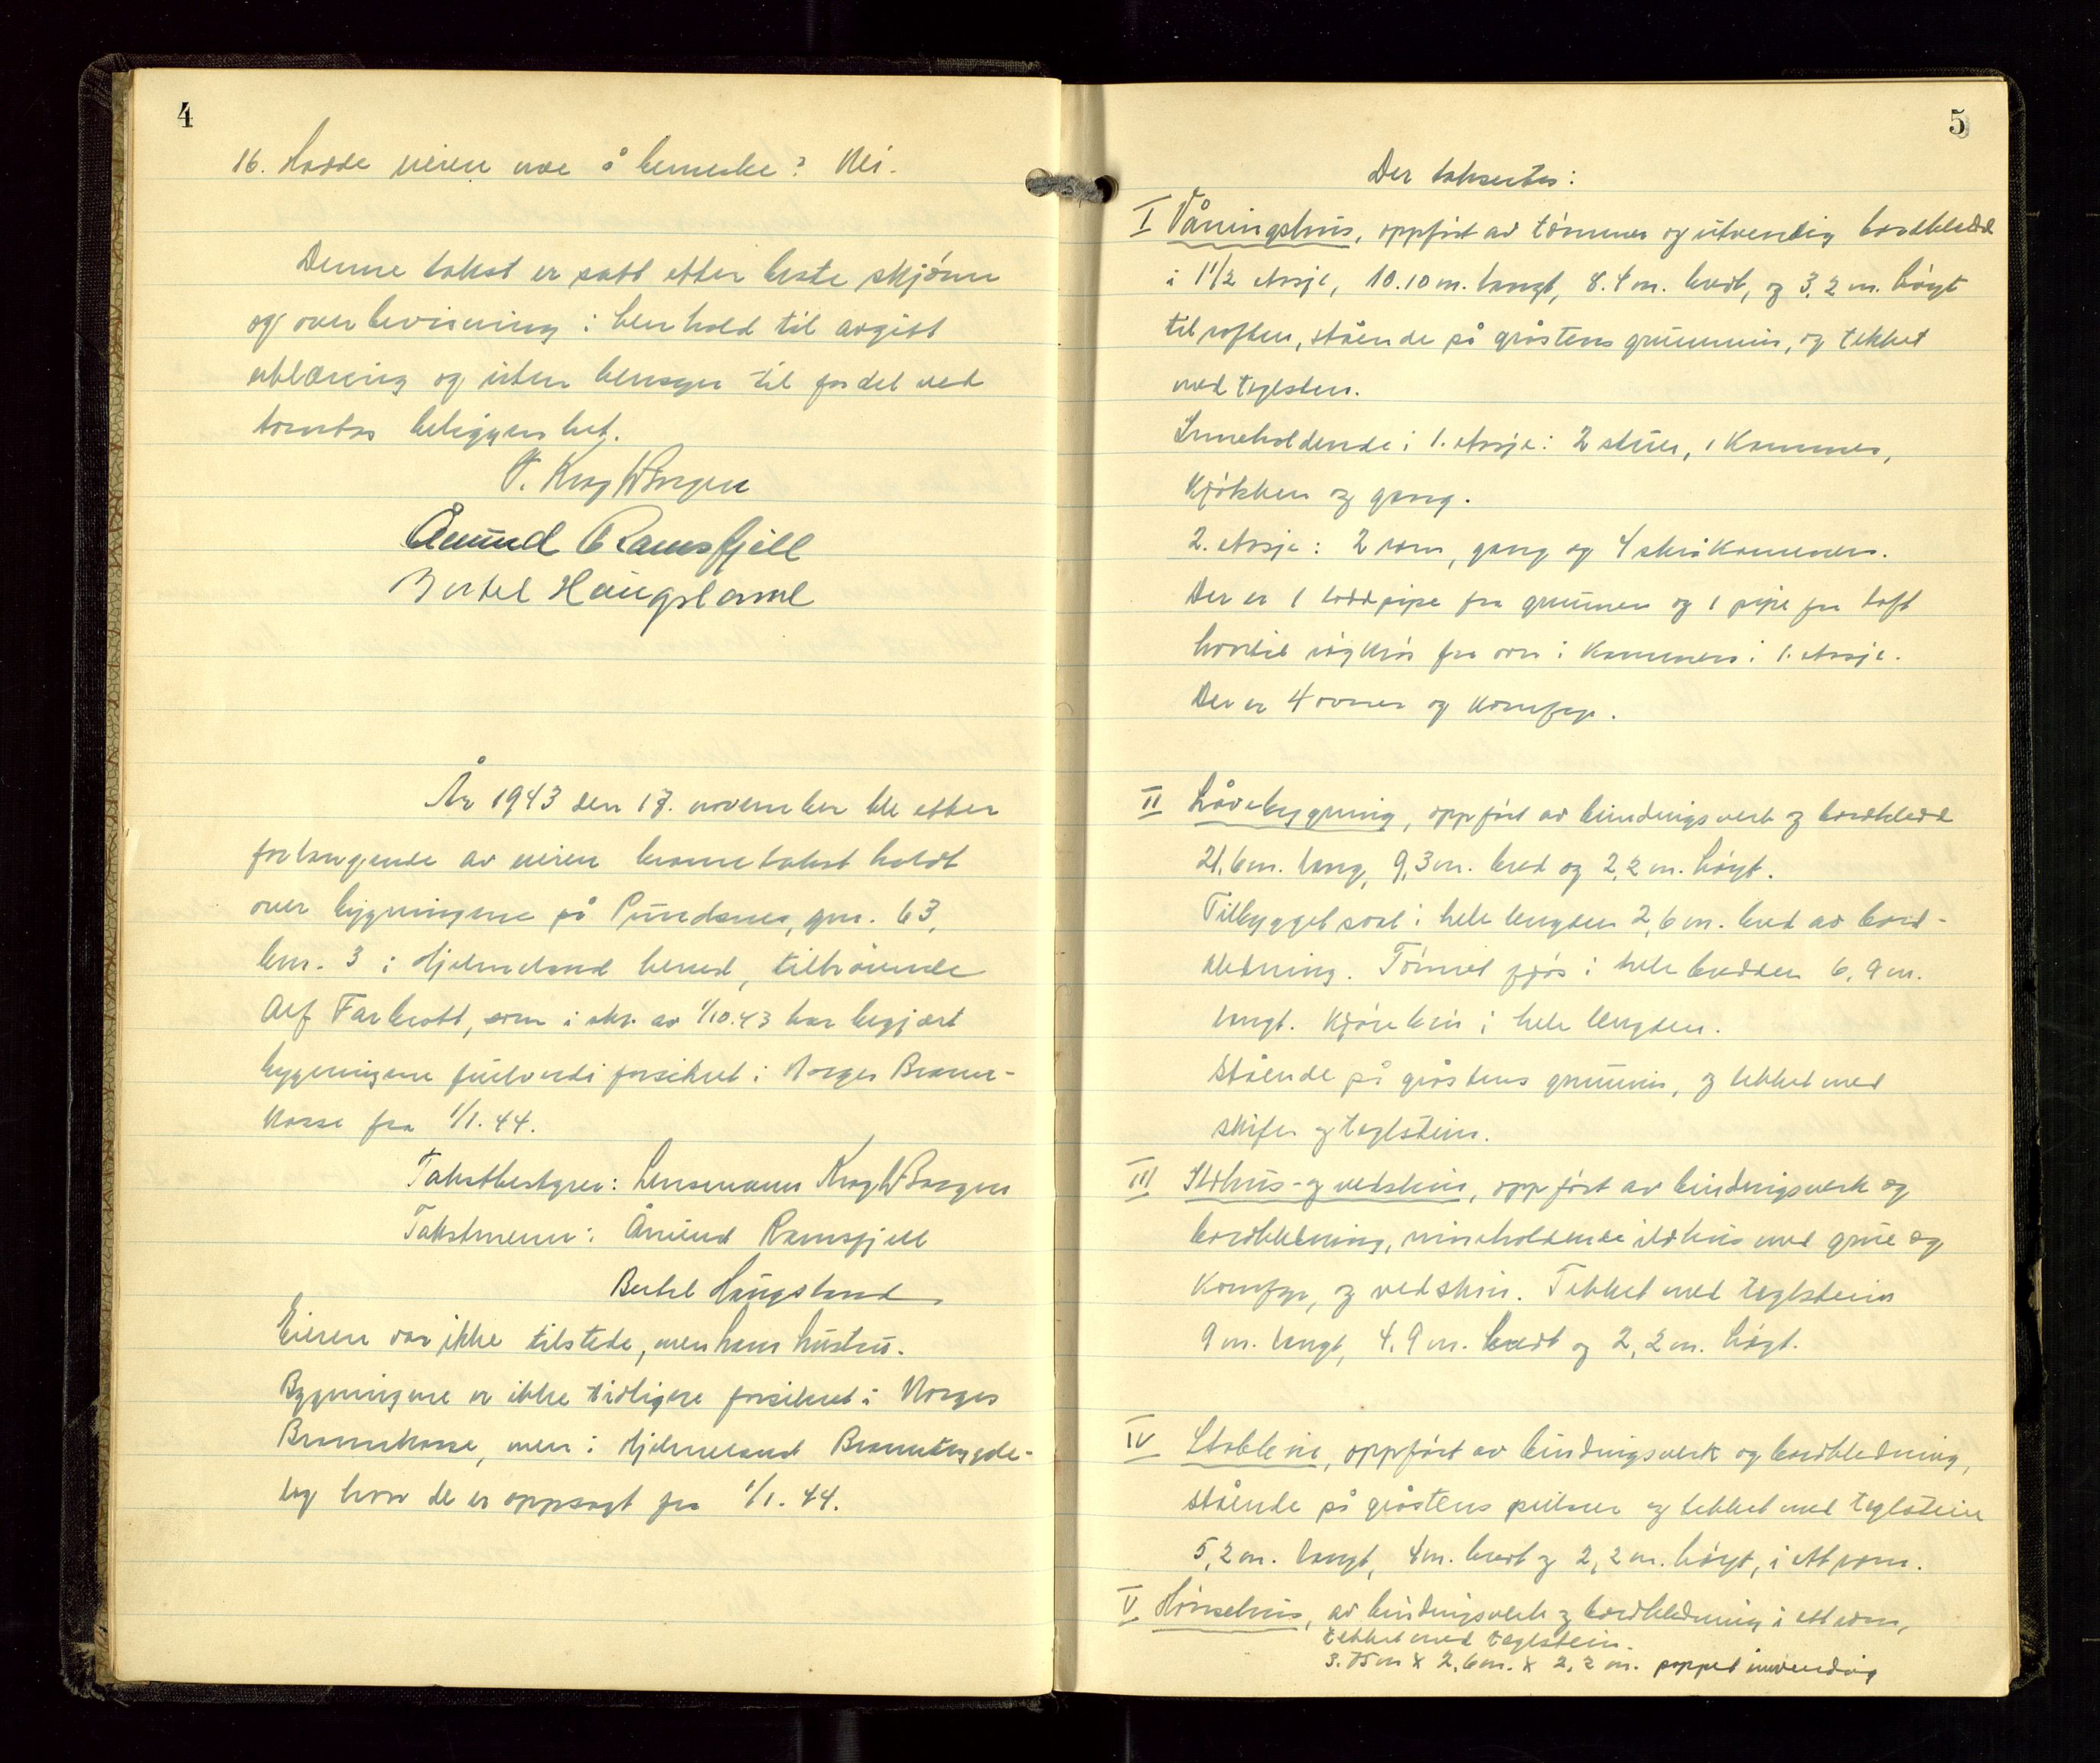 4
16. Hadde eieren noe å bemerke? Nei.
Denne takst er satt etter beste skjønn
og overbevisning i henhold til avgitt
erklæring og uten hensyn til fordel ved
tomtas beliggenhet.
Åmund Ramsfjell
Bertel Haugsland
År 1943 den 17. november ble etter
forlangende av eieren branntakst holdt
over bygningene på Pundsnes, gnr. 63,
bnr. 3 i Hjelmeland herred, tilhørende
Alf Farbrott, som i skr. av 1/10.43 har begjært
bygningene fullverdiforsikret i Norges Brann-
kasse fra 1/1. 44.
Takstbestyrer: Lensmann Krag
Takstmenn: Åmund Ramsfjell
Bertel Haugsland
Eieren var ikke tilstede, men hans hustru.
Bygningene er ikke tidligere forsikret i Norges
Brannkasse, men i Hjelmeland Branntrygde-
lag hvor de er oppsagt fra 1/1. 44.
5
Der takseres:
I Våningshus, oppført av tømmer og utvendig bordkledd
i 1 1/2 etasje, 10.10 m. langt, 8.4 m. bredt, og 3,2 m. høgt
til raften, stående på gråstens grunnmur, og tekket
med teglsten.
Inneholdende i 1. etasje: 2 stuer, 1 kammer,
kjøkken og gang.
2. etasje: 2 rom, gang og 4 skråkammers.
Der er 1 loddpipe fra grunnen og 1 pipe fra loft
hvortil røykrør fra ovn i kammers i 1. etasje.
Der er 4 ovner og komfyr.
II Låvebygning, oppført av bindingsverk og bordkledd
21,6 m. lang, 9,3 m. bred og 2,2 m. høgt.
Tilbygget sval i hele lengden 2,6 m. bred av bord-
kledning. Tømret fjøs i hele bredden 6,9 m.
langt. Kjørebru i hele lengden.
Stående på gråstens grunnmur, og tekket med
skifer og teglstein.
III Ildhus- og vedskur, oppført av bindingsverk og
bordkledning, inneholdende ildhus med grue og
komfyr, og vedskur. Tekket med teglstein
9 m. langt, 4,9 m. bredt og 2,2 m. høgt.
IV Stabbur, oppført av bindingsverk og bordkledning,
stående på gråstens pilarer og tekket med teglstein
5,2 m. langt, 4 m. bredt og 2,2 m. høgt, i ett rom.
V Hønsehus, av bindingsverk og bordkledning i ett rom,
tekket med teglstein.
3.75 m x 2,6 m. x 2,2 m. pappet innvendig